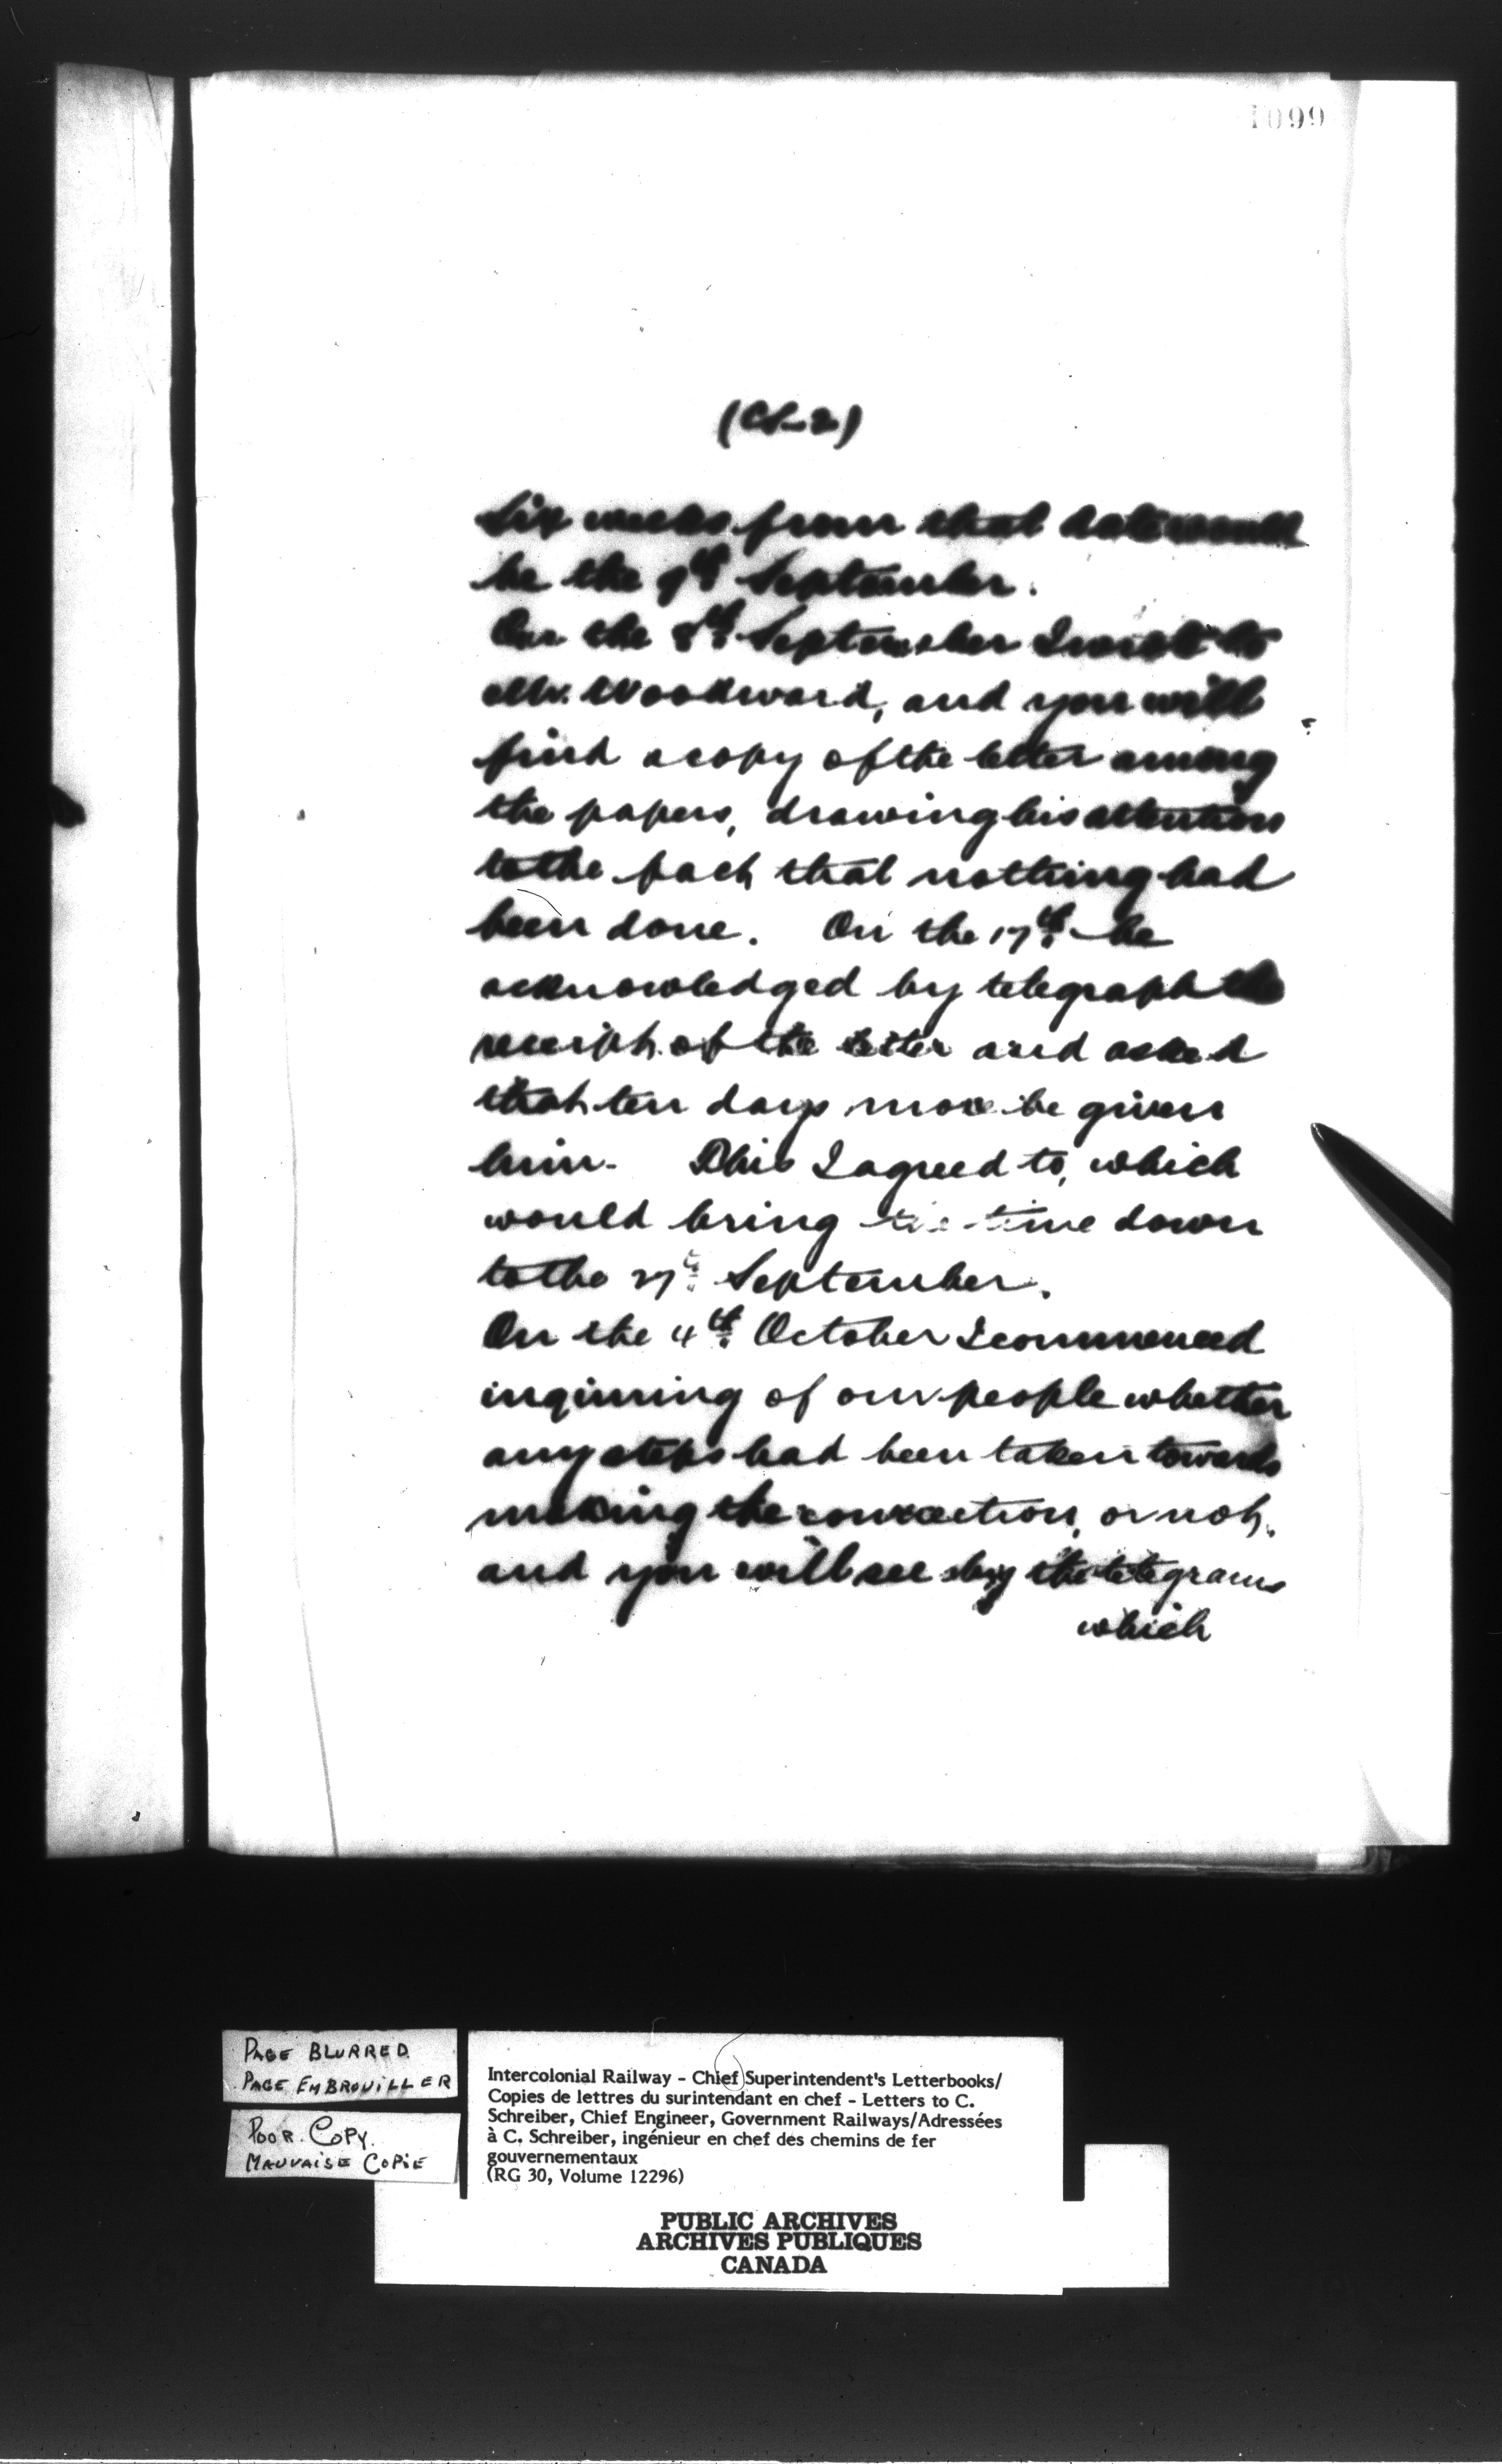 1099
(CS-2)
Six weeks from that date would
be the 9th September.
On the 8th September I wrote to
Mr. Woodward, and you will
find a copy of the letter among
the papers, drawing his attention
to the fact that nothing had
been done. On the 17th he
acknowledged by telegraph the
receipt of the letter and asked
that ten days more be given
him. This I agreed to, which
would bring the time down
to the 27th September.
On the 4th October I commenced
inquiring of our people whether
any steps had been taken towards
making the connection, or not,
and you will see by the telegrams
which
PAGE BLURRED
PAGE EMBROUILLER
POOR COPY.
MAUVAISE COPIE
Intercolonial Railway - Chief Superintendent's Letterbooks/
Copies de lettres du surintendant en chef - Letters to C.
Schreiber, Chief Engineer, Government Railways/Adressées
à C. Schreiber, ingénieur en chef des chemins de fer
gouvernementaux
(RG 30, Volume 12296)
PUBLIC ARCHIVES
ARCHIVES PUBLIQUES
CANADA